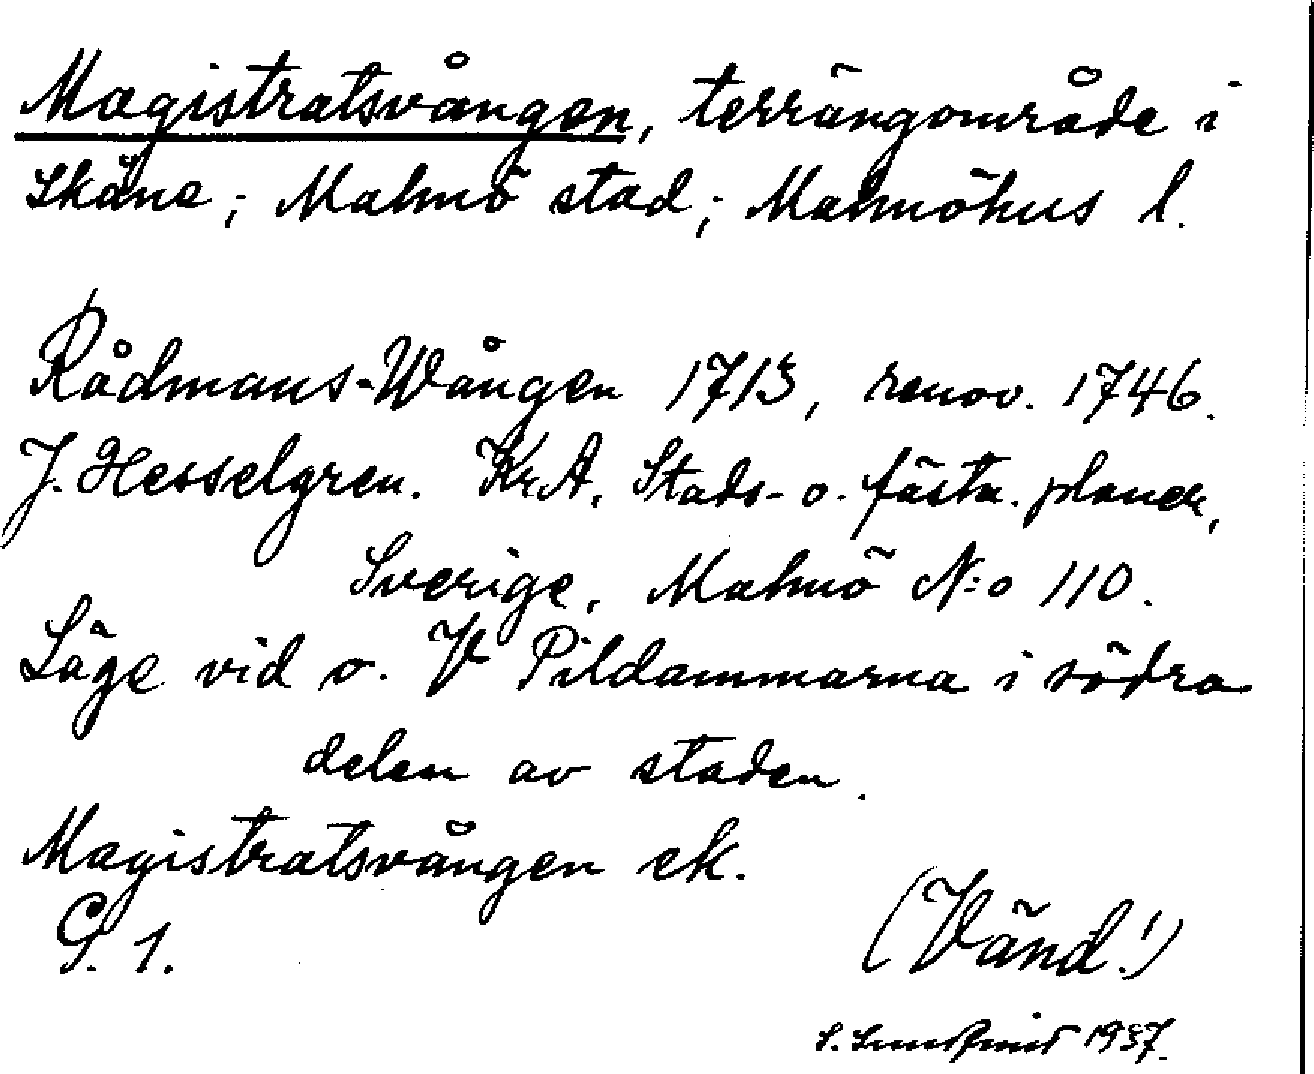 Magistratsvången, terrängområde i
Skåne; Malmö stad; Malmöhus l.
Rådmans-Wången 1713, renov. 1746.
J. Hesselgren. KrA, Stads- o. fästn. planer,
Sverige, Malmö N:o 110.
Läge vid o. V Pildammarna i södra
delen av staden.
Magistratsvången ek.
S. 1.
(Vänd!)
S. 1937.